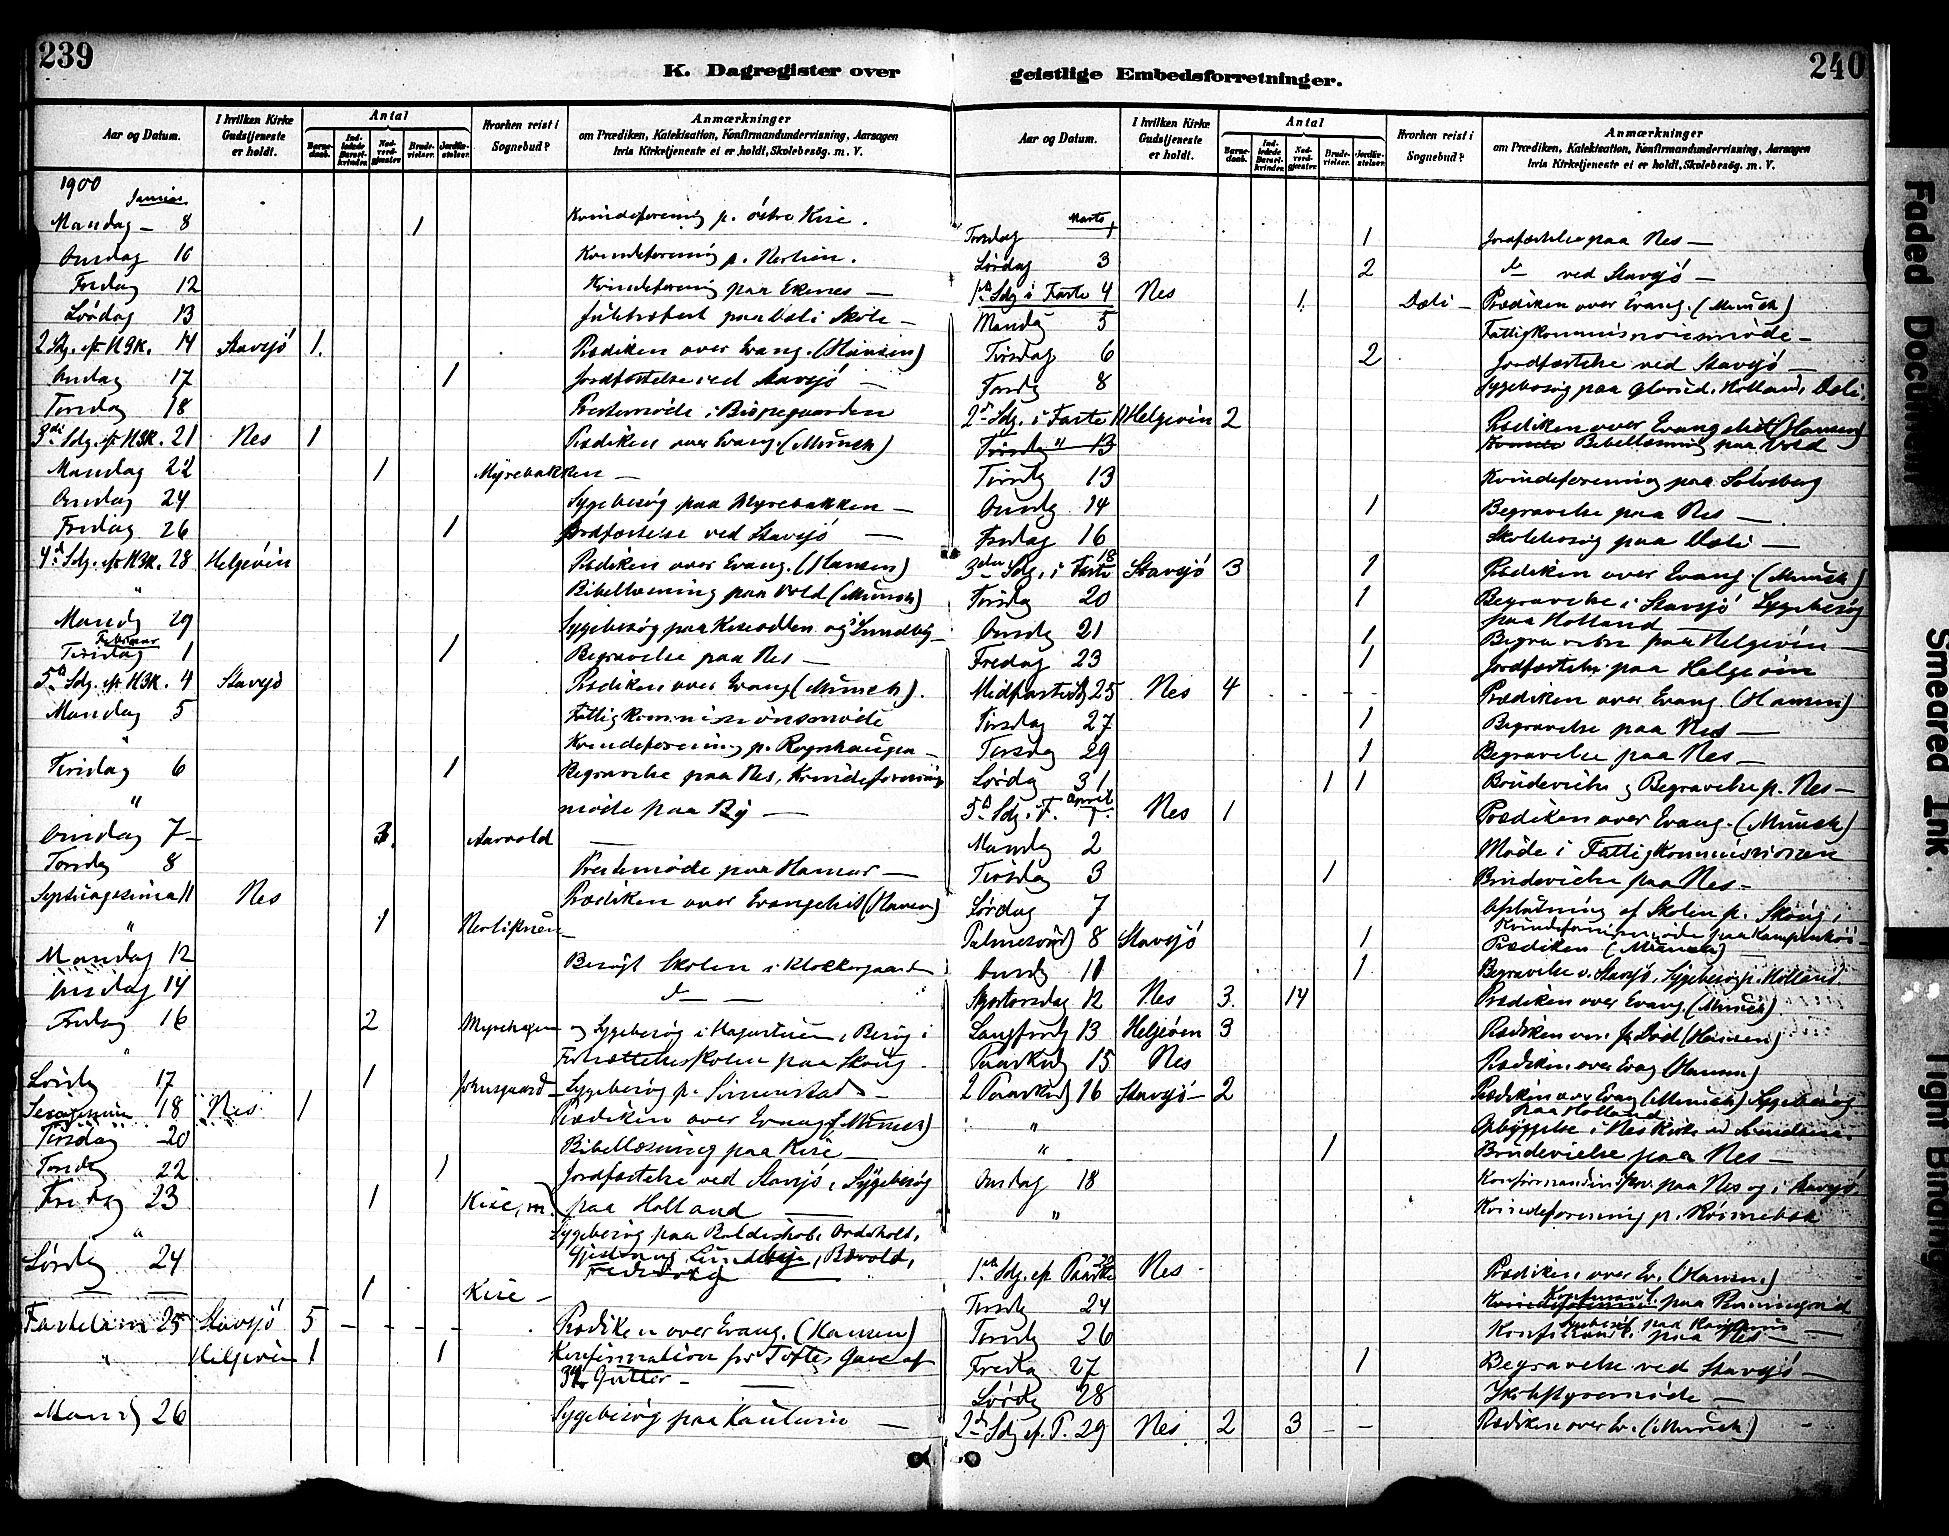 239
K. Dagregister over
Aar og Datum.
I hvilken Kirke Gudstjeneste er holdt.
Antal
Barne-daab.
Ind-ledede Barsel-kvinder.
Nad-verd-gjester.
Brude-vielser.
Jordfæ-stelser.
Hvorhen reist i Sognebud?
Anmærkninger
om Prædiken, Katekisation, Konfirmandundervisning, Aarsagen
hvis Kirketjeneste ei er holdt, Skolebesög. m. V.
1900
Januar
Mandag – 8 1 Kvindeforening p. östre Kise.
Onsdag 10 Kvindeforening p.
Fredag 12 Kvindeforening paa Ekenes –
Lördag 13 Juletræfest paa Dæli Skole –
2 Sdg. ef. H3K. 14 Stavsjö 1. Prædiken over Evang. (Hansen)
Onsdag 17 1 Jordfæstelse ved Stavsjö –
Torsdag 18 Prestemöde i Bispegaarden
3die Sdg. ef. H3K. 21 Nes 1 Prædiken over Evang. (Munch)
Mandag 22 1 Myrebakken –
Onsdag 24 Sygebesög paa Myrebakken –
Fredag 26 1 Jordfæstelse ved Stavsjö –
4d Sdg. ef. H3K. 28 Helgeöen Prædiken over Evang. (Hansen)
" Bibellæsning paa Vold (Munch)
Mandg 29 Sygebesög paa og Sundby –
Februar
Torsdag 1 1 Begravelse paa Nes –
5d Sdg. ef. H3K. 4 Stavsjö Prædiken over Evang (Munch).
Mandag 5 Fattigkommissionsmöde
" Kvindeforening p. Rognhaugen –
Tirsdag 6 1 Begravelse paa Nes, Kvindeforenings
" möde paa By –
Onsdag 7 – 3. Aarvold –
Torsdg 8 Prestemöde paa Hamar –
Septuagesima 11 Nes Prædiken over Evangeliet (Hansen)
" 1
Mandag 12 Besögt Skolen i Klokkergaard
Onsdag 14 do – –
Fredag 16 2 Myrehagen og Sygebesög i , Besög i
" Fortsættelsesskolen paa Skoug
Lördg 17 1 Sygebesög p. Simenstad –
18 Nes 1 Prædiken over Evang. (Munch)
Tirsdag 20 Bibellæsning paa Kise –
Torsdg 22 1 Jordfæstelse ved Stavsjö, Sygebesög
Fredag 23 1 Kise, m. paa Holland –
" Sygebesög paa
Lördg 24 og Sundby,
– – 1 Kise –
Fastelavn 25 Stavsjö 5 – – – – Prædiken over Evang. (Hansen)
" Helgeöen 1 1 Konfirmation for Toftes Gave af
Gutter –
Mand. 26 Sygebesög paa –
240
geistlige Embedsforretninger.
Aar og Datum.
I hvilken Kirke Gudstjeneste er holdt.
Antal
Barne-daab.
Ind-ledede Barsel-kvinder.
Nad-verd-gjester.
Brude-vielser.
Jordfæ-stelser.
Hvorhen reist i Sognebud?
Anmærkninger
om Prædiken, Katekisation, Konfirmandundervisning, Aarsagen
hvis Kirketjeneste ei er holdt, Skolebesög. m. V.
Marts
Torsdag 1 1 Jordfæstelse paa Nes –
Lördag 3 2 do ved Stavsjö –
1ste Sdg i Faste 4 Nes 1. Dæli – Prædiken over Evang. (Munch)
Mandag 5 Fattigkommissionsmöde –
Tirsdag 6 2 Jordfæstelse ved Stavsjö –
Torsdg 8 Sygebesög paa , Holland, Dæli.
2den Sdg. i Faste 11 Helgeöen 2 Prædiken over Evangeliet (Hansen)
Tirsdag " 13 Kvinde Bibellæsning paa Vold
Tirsdg 13 Kvindeforening paa Sölvsberg
Onsdg 14 1 Begravelse paa Nes –
Fredag 16 Skolebesög paa Dæli –
3die Sdg. i Faste 18 Stavsjö 3 1 Prædiken over Evang. (Munch)
Tirsdag 20 1 Begravelse i Stavsjö Sygebesög
paa Holland –
Onsdg 21 1 Begravelse paa Helgeöen –
Fredag 23 1 Jordfæstelse paa Helgeöen
Midfastesdg 25 Nes 4 . – – Prædiken over Evang. (Hansen)
Tirsdag 27 1 Begravelse paa Nes –
Torsdag 29 1 Begravelse paa Nes –
Lördag 31 1 1 Brudevielse og Begravelse p. Nes –
April
5d Sdg. i F. 1 Nes 1 Prædiken over Evang. (Munch)
Mandg 2 Möde i Fattigkommissionen
Tirsdag 3 1 Brudevielse paa Nes –
Lördag 7 Afslutning af Skolen p. Skoug,
Kvindeforeningsmöde paa
Palmesönd 8 Stavsjö 1 Prædiken (Munch) –
Onsdg 11 1 Begravelse v. Stavsjö, Sygebesög p. Holland.
Skjærtorsdag 12 Nes 3. 14 Prædiken over Evang. (Munch)
Langfredg 13 Helgeöen 3 Prædiken over Död (Hansen)
Paaskedg 15 Nes Prædiken over Evang (Hansen)
2 Paaskedg 16 Stavsjö – 2 Prædiken over Evang (Munch) Sygebesög
paa Holland
" i Nes Kirke
" 1 Brudevielse paa Nes –
Onsdag 18 paa Nes og i Stavsjö.
" Kvindeforening p.
1ste Sdg. ef. Paaske Nes – Prædiken over Ev. (Hansen)
Tirsdg 24 paa
Torsdg 26 paa Nes –
Fredag 27 1 Begravelse ved Stavsjö –
Lördg 28 –
2d Sdg ef. P. 29 Nes 2 3 – – Prædiken over Ev. (Munch) –
Faded Document
Smeared Ink.
Tight Binding